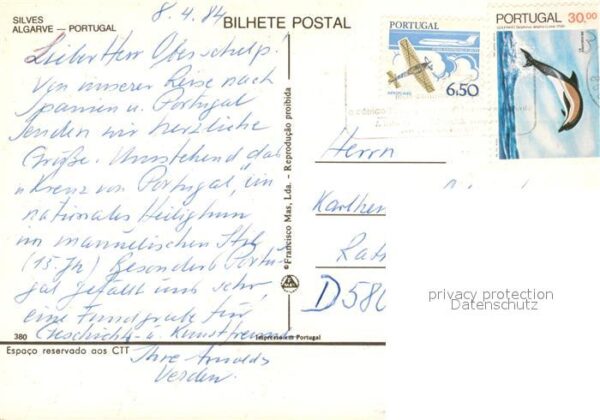 SILVES
ALGARVE — PORTUGAL
8.4.84
BILHETE POSTAL
Lieber Herr Oberschelp.
Von unserer Reise nach
Spanien u. Portugal
senden wir herzliche
Grüße. Umstehend das
„Kreuz von Portugal", ein
nationales Heiligtum
im manuelischen Stil
(15. Jh) Besonders Portu-
gal gefällt uns sehr,
eine Fundgrube für
Geschichts- u. Kunstfreunde
Ihre Arnolds
Verden.
380
Espaço reservado aos CTT
©Francisco Mas, Lda. - Reprodução proibida
Impresso em Portugal
PORTUGAL
6.50
PORTUGAL 30.00
Herrn
D 580
privacy protection
Datenschutz